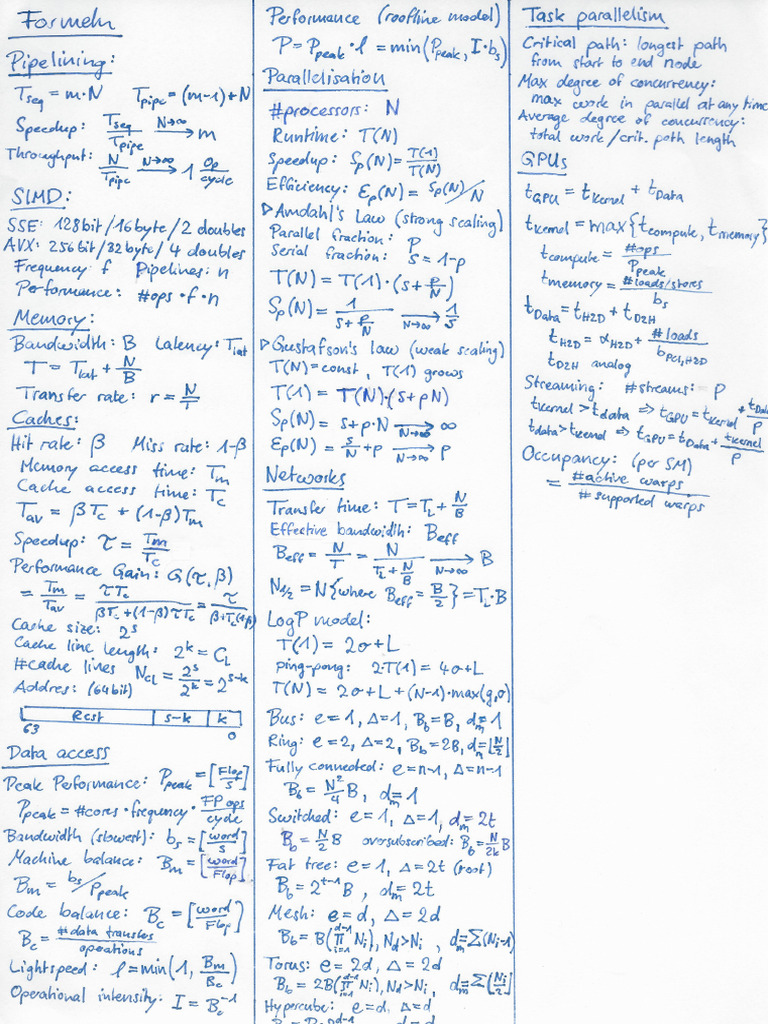 Formeln
Pipelining:
T_seq = m·N   T_pipe = (m-1)+N
Speedup: T_seq/T_pipe —N→∞→ m
Throughput: N/T_pipe —N→∞→ 1 Op/cycle
SIMD:
SSE: 128bit/16byte/2 doubles
AVX: 256bit/32byte/4 doubles
Frequency f   Pipelines: n
Performance: #ops·f·n
Memory:
Bandwidth: B   Latency: T_lat
T = T_lat + N/B
Transfer rate: r = N/T
Caches:
Hit rate: β   Miss rate: 1-β
Memory access time: T_m
Cache access time: T_c
T_av = βT_c + (1-β)T_m
Speedup: τ = T_m/T_c
Performance Gain: G(τ,β)
= T_m/T_av = τT_c/(βT_c+(1-β)τT_c) = τ/(β+τ(1-β))
Cache size: 2^s
Cache line length: 2^k = C_L
#cache lines N_CL = 2^s/2^k = 2^(s-k)
Addres: (64bit)
Rest | s-k | k
63   0
Data access
Peak Performance: P_peak = [Flop/s]
P_peak = #cores·frequency·FP ops/cycle
Bandwidth (slowest): b_s = [word/s]
Machine balance: B_m = [word/Flop]
B_m = b_s/P_peak
Code balance: B_c = [word/Flop]
B_c = #data transfers/operations
Lightspeed: l = min(1, B_m/B_c)
Operational intensity: I = B_c^-1
Performance (roofline model)
P = P_peak·l = min(P_peak, I·b_s)
Parallelisation
#processors: N
Runtime: T(N)
Speedup: S_p(N) = T(1)/T(N)
Efficiency: ε_p(N) = S_p(N)/N
▷Amdahl's Law (strong scaling)
Parallel fraction: P
Serial fraction: s = 1-p
T(N) = T(1)·(s+p/N)
S_p(N) = 1/(s+p/N) —N→∞→ 1/s
▷Gustafson's Law (weak scaling)
T(N)=const, T(1) grows
T(1) = T(N)·(s+pN)
S_p(N) = s+p·N —N→∞→ ∞
ε_p(N) = s/N + p —N→∞→ p
Networks
Transfer time: T = T_L + N/B
Effective bandwidth: B_eff
B_eff = N/T = N/(T_L+N/B) —N→∞→ B
N_1/2 = N{where B_eff = B/2} = T_L·B
LogP model:
T(1) = 2o+L
ping-pong: 2T(1) = 4o+L
T(N) = 2o+L+(N-1)·max(g,o)
Bus: e=1, Δ=1, B_b=B, d_m=1
Ring: e=2, Δ=2, B_b=2B, d_m=⌊N/2⌋
Fully connected: e=n-1, Δ=n-1
B_b = N²/4 B, d_m=1
Switched: e=1, Δ=1, d_m=2t
B_b = N/2 B   oversubscribed: B_b = N/2k B
Fat tree: e=1, Δ=2t (root)
B_b = 2^(t-1) B, d_m=2t
Mesh: e=d, Δ=2d
B_b = B(∏_{i=1}^{d-1} N_i), N_d>N_i, d_m=Σ(N_i-1)
Torus: e=2d, Δ=2d
B_b = 2B(∏_{i=1}^{d-1} N_i), N_d>N_i, d_m=Σ⌊N_i/2⌋
Hypercube: e=d, Δ=d
Task parallelism
Critical path: longest path
from start to end node
Max degree of concurrency:
max work in parallel at any time
Average degree of concurrency:
total work/crit. path length
GPUs
t_GPU = t_kernel + t_Data
t_kernel = max{t_compute, t_memory}
t_compute = #ops/P_peak
t_memory = #loads/stores/b_s
t_Data = t_H2D + t_D2H
t_H2D = α_H2D + #loads/b_PCI,H2D
t_D2H analog
Streaming: #streams: P
t_kernel > t_data ⇒ t_GPU = t_kernel + t_Data/P
t_data > t_kernel ⇒ t_GPU = t_Data + t_kernel/P
Occupancy: (per SM)
= #active warps/#supported warps